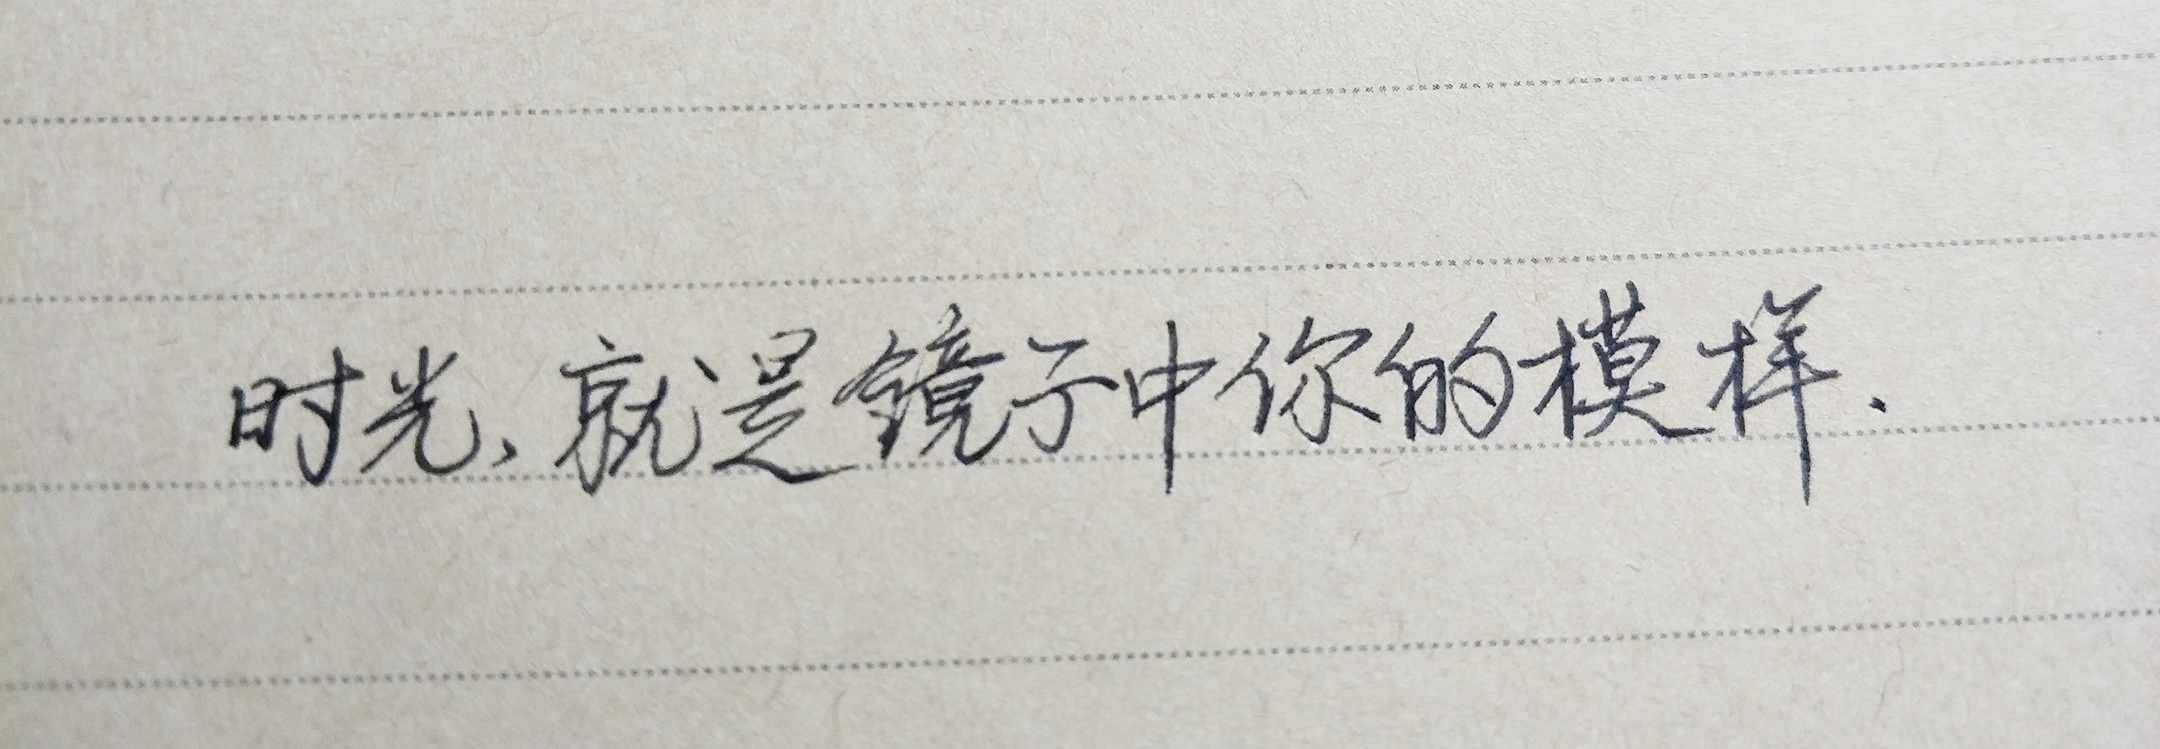 时光、就是镜子中你的模样.